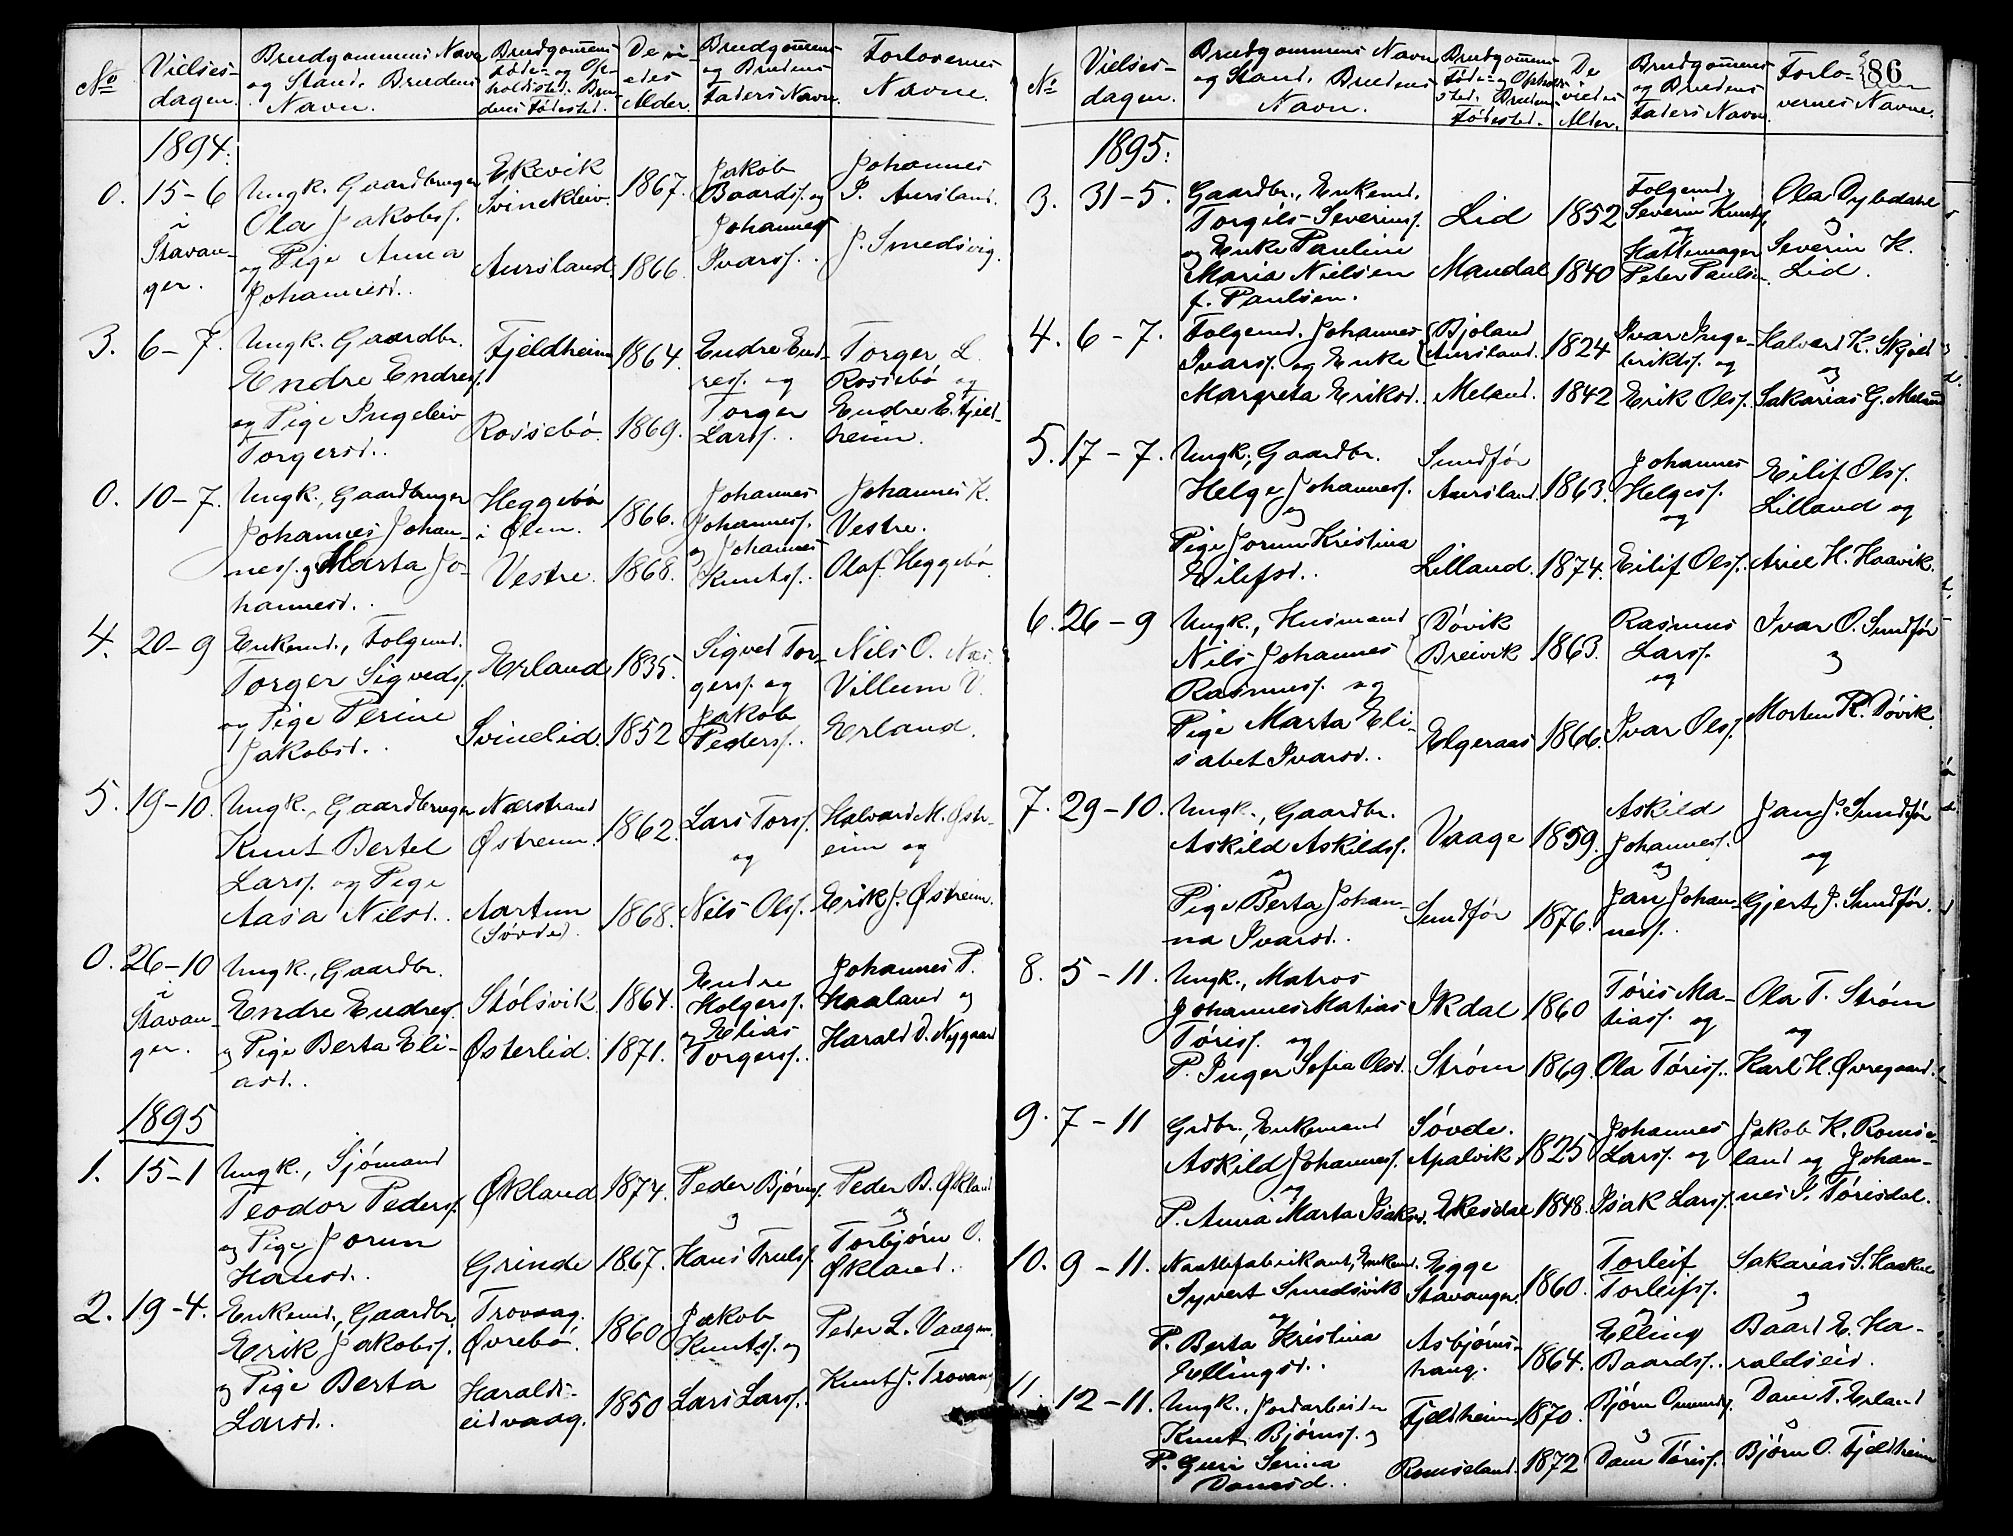 No
Vielses-
dagen.
Brudgommens Navn
og Stand. Brudens
Navn.
Brudgommens
Føde- og Op-
holdssted. Bru-
dens Fødested.
De vi-
edes
Alder.
Brudgommens
og Brudens
Faders Navn.
Forlovernes
Navne.
1894.
0. 15-6
i
Stavan-
ger.
Ungk. Gaardbruger
Ola Jakobss.
og Pige Anna
Johannesd.
Ekevik
Svinekleiv.
Aursland
1867.
1866.
Jakob
Baardss. og
Johannes
Ivarss.
Johannes
I. Aursland.
J. Smedsvig.
3. 6-7.
Ungk. Gaardbr.
Endre Endress.
og Pige Ingeleiv
Torgersd.
Fjeldheim
Rossebø.
1864.
1869.
Endre End-
ress. og
Torger
Larss.
Torger L.
Rossebø og
Endre E. Fjeld-
heim.
0. 10-7.
Ungk., Gaardbruger
Johannes Johan-
ness. og Marta Jo-
hannesd.
Heggebø
i Ølen.
Vestre.
1866.
1868.
Johannes
Johanness.
og Johannes
Knutss.
Johannes K.
Vestre.
Olaf Heggebø.
4. 20-9
Enkemd., Folgemd.
Torger Sigvedss.
og Pige Perine
Jakobsd.
Erland
Svinelid.
1835.
1852
Sigved Tor-
gerss. og
Jakob
Pederss.
Nils O. Næs
Villum V.
Erland.
5. 19-10.
Ungk., Gaardbruger
Knut Bertel
Larss. og Pige
Aasa Nilsd.
Nærstrand
Østreim.
Aartun
(Søvde).
1862.
1868.
Lars Torss.
og
Nils Olss.
Halvard M. Østr-
eim og
Erik J. Østreim.
0. 26-10
i
Stavan-
ger.
Ungk., Gaardbr.
Endre Endress.
og Pige Berta Eli-
asd.
Stølsvik
Østerlid.
1864.
1871.
Endre
Holgerss.
og Elias
Torgerss.
Johannes P.
Haaland og
Harald D. Nygaard
1895
1. 15-1
Ungk., Sjømand
Teodor Pederss.
og Pige Jorun
Hansd.
Økland
Grinde
1874.
1867.
Peder Bjørnss.
og
Hans Trulss.
Peder B. Økland
og
Torbjørn O.
Økland.
2. 19-4.
Enkemd., Gaardbr.
Erik Jakobss.
og Pige Berta
Larsd.
Trovaag.
Øvrebø.
Haralds-
eidvaag.
1860
1850
Jakob
Knutss. og
Lars Larss.
Peder L. Vaagen
Knut J. Trovaag
No
Vielses-
dagen.
Brudgommens Navn
og Stand. Brudens
Navn.
Brudgommens
Føde- og Opholds-
sted. Brudens
Fødested.
De
viedes
Alder.
Brudgommens
og Brudens
Faders Navn.
Forlo-
vernes Navne.
86
1895.
3. 31-5.
Gaardbr., Enkemd.
Torgils Severinss.
og Enke Pauline
Maria Nielsen
f. Paulsen.
Lid
Mandal
1852
1840
Folgemd.
Severin Knutss.
og
Hattemager
Peter Paulsen.
Ola Dybdahl
og
Severin K.
Lid.
4. 6-7.
Folgemd. Johannes
Ivarss. og Enke
Margreta Eriksd.
Bjoland
Aursland.
Meland.
1824
1842
Ivar Inge-
briktss. og
Erik Olss.
Halvard K. Skjold
og
Sakarias G. Meland
5. 17-7.
Ungk., Gaardbr.
Helge Johanness.
og
Pige Jorun Kristina
Eilifsd.
Sundfør
Aursland.
Lilland.
1863.
1874.
Johannes
Helgess.
og
Eilif Olss.
Eilif Olss.
Lilland og
Ariel H. Haavik.
6. 26-9
Ungk., Husmand
Nils Johannes
Rasmuss. og
Pige Marta Eli-
sabet Ivarsd.
Døvik
Breivik
Elgeraas
1863.
1866.
Rasmus
Larss.
og
Ivar Olss.
Ivar O. Sundfør
og
Morten R. Døvik.
7. 29-10.
Ungk., Gaardbr.
Askild Askildss.
og
Pige Berta Johan-
na Ivarsd.
Vaage
Sundfør
1859.
1876.
Askild
Johanness.
og
Jan Johan-
ness.
Jan J. Sundfør
og
Gjert J. Sundfør.
8. 5-11.
Ungk., Matros
Johannes Matias
Tøriss. og
P. Inger Sofia Olsd.
Ikdal
Strøm
1860
1869.
Tøris Ma-
tiass. og
Ola Tøriss.
Ola T. Strøm
og
Karl H. Øvregaard.
9. 7-11
Grdbr., Enkemand
Askild Johanness.
og
P. Anna Marta Isaksd.
Søvde.
Apalvik
Ekesdal
1825
1848.
Johannes
Larss. og
Isak Larss.
Jakob K. Romsa-
land og Johan-
nes I. Tørisdal.
10. 9-11.
Syvert Smedsvik
og
P. Berta Kristina
Ellingsd.
Egge
Stavanger.
Asbjørns-
haug.
1860.
1864.
Torleif
Torleifss.
og
Elling
Baardss.
og
Baard E. Ha-
raldseid.
11. 12-11.
Ungk., Jordarbeider
Knut Bjørnss. og
P. Guri Serina
Danesd.
Fjeldheim
Romseland.
1870.
1872
Bjørn Omundss.
og
Dane Tøriss.
Dane T. Erland
og
Bjørn O. Fjeldheim